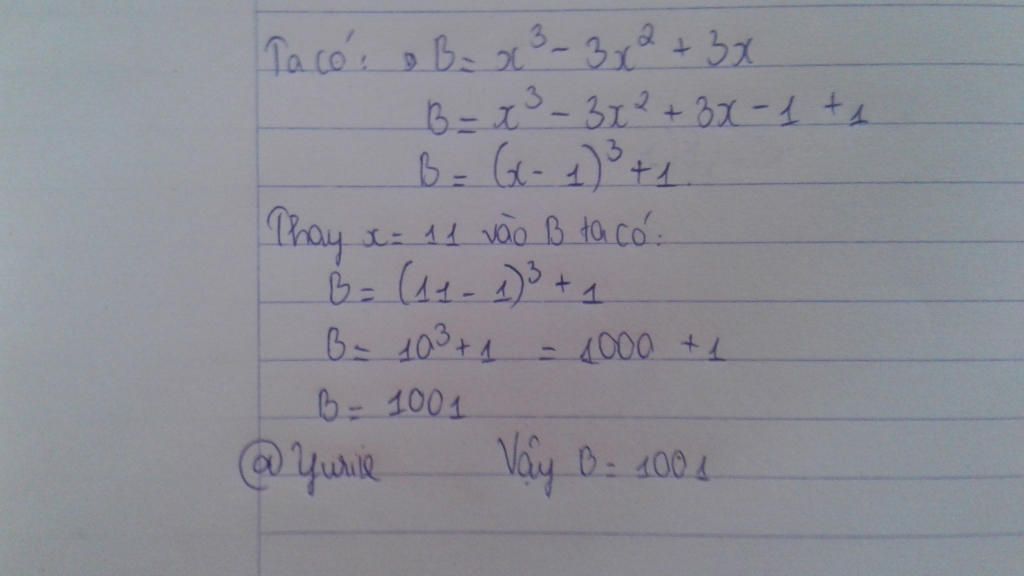 Ta có: B = x³ - 3x² + 3x
B = x³ - 3x² + 3x - 1 + 1
B = (x - 1)³ + 1
Thay x = 11 vào B ta có:
B = (11 - 1)³ + 1
B = 10³ + 1 = 1000 + 1
B = 1001
@Yurie Vậy B = 1001